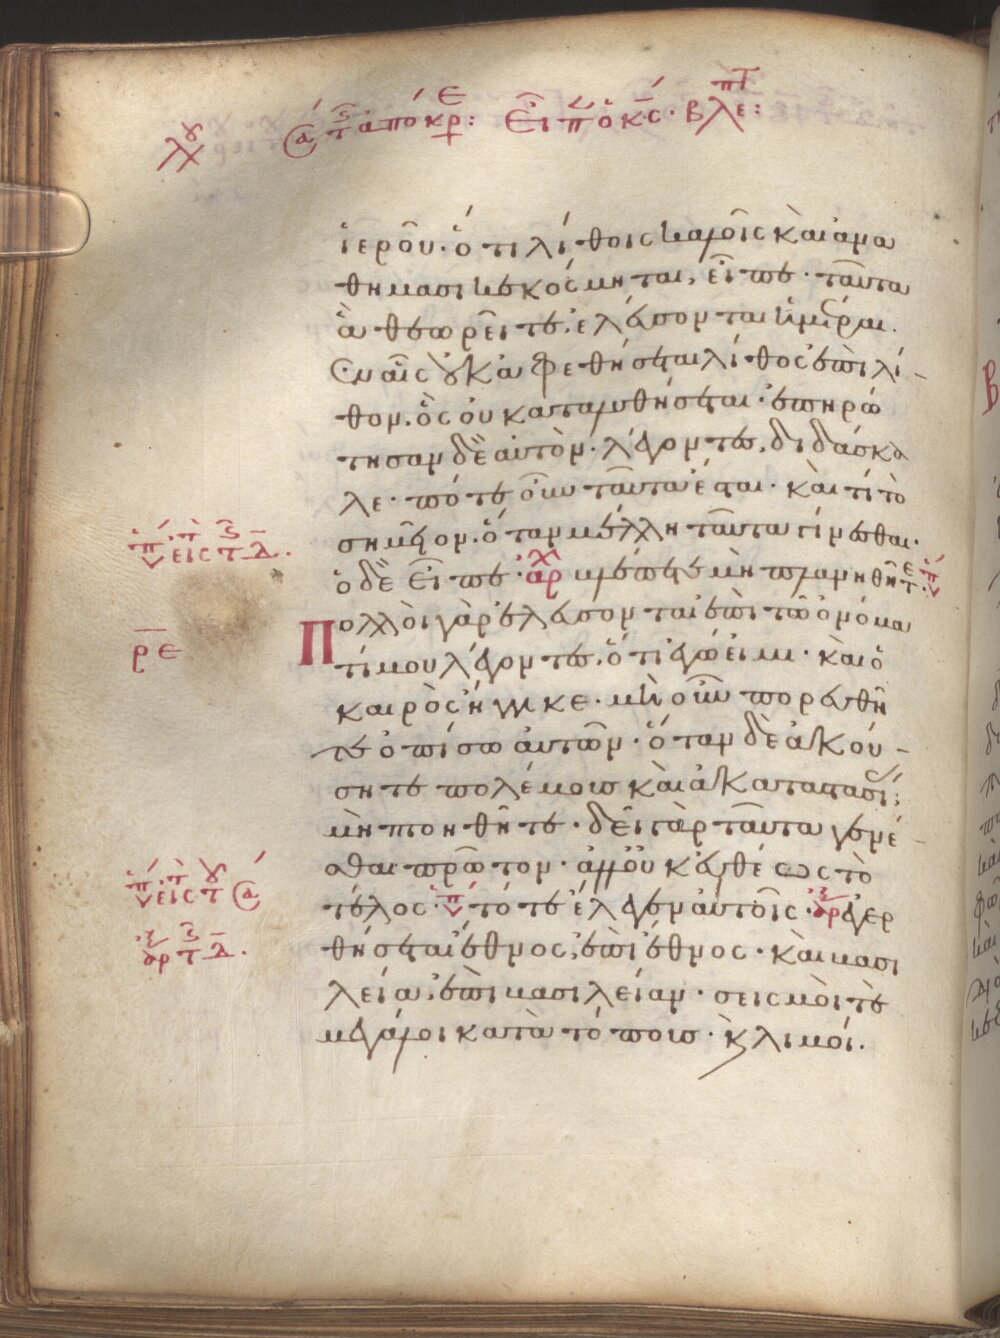 ἱεροῦ· ὅτι λίθοις καλοῖς καὶ ἀνα
θήμασι κεκόσμηται, εἶπε· ταῦτα
ἃ θεωρεῖτε, ἐλεύσονται ἡμέραι.
Ἐν αἷς οὐκ ἀφεθήσεται λίθος ἐπὶ λί
θον, ὃς οὐ καταλυθήσεται· ἐπηρώ
τησαν δὲ αὐτὸν· λέγοντες, διδάσκα
λε· πότε οὖν ταῦτα ἔσται· καὶ τί τὸ
σημεῖον, ὅταν μέλλη ταῦτα γίνεσθαι·
ὁ δὲ εἶπε· ἀρχ βλέπετε μὴ πλανηθῆτε·
Πολλοὶ γὰρ ἐλεύσονται ἐπὶ τῶ ὀνόμα
τί μου λέγοντες, ὅτι ἐγώ εἰμι· καὶ ὁ
καιρὸς ἤγγικε· μὴ οὖν πορευθῆ
τε ὀπίσω αὐτῶν· ὅταν δὲ ἀκού
σητε πολέμους καὶ ἀκαταστασίας,
μὴ πτοηθῆτε· δεῖ γὰρ ταῦτα γενέ
σθαι πρῶτον· ἀλλ' οὐκ εὐθέως τὸ
τέλος· τότε ἔλεγεν αὐτοῖς· ἐγερ
θήσεται ἔθνος, ἐπὶ ἔθνος· καὶ βασι
λεία, ἐπὶ βασιλείαν· σεισμοί τε
μεγάλοι κατὰ τόπους· καὶ λιμοί.
ρε